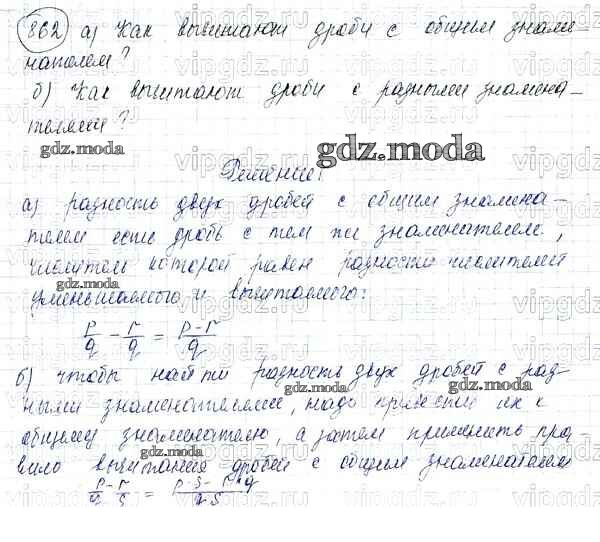 862 а) Как вычитают дроби с общим знаме-
нателем?
б) Как вычитают дроби с разными знамена-
телями?
gdz.moda
gdz.moda
Решение:
а) разность двух дробей с общим знамена-
телем есть дробь с тем же знаменателем,
gdz.moda
числитель которой равен разности числителей
уменьшаемого и вычитаемого:
gdz.moda
p/q - r/q = (p-r)/q
gdz.moda
б) чтобы найти разность двух дробей с раз-
gdz.moda gdz.moda
ными знаменателями, надо привести их к
общему знаменателю, а затем применить пра-
вило вычитания дробей с общим знаменателем
gdz.moda gdz.moda
vipgdz.ru